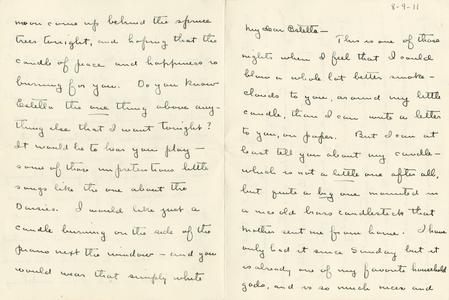 8-9-11
My dear Estella—
This is one of those
nights when I feel that I could
blow a whole lot better smoke-
clouds to you, around my little
candle, than I can write a letter
to you, on paper. But I can at
least tell you about my candle—
which is not a little one after all,
but quite a big one mounted in
a nice old brass candlestick that
Mother sent me from home. I have
only had it since Sunday but it
is already one of my favorite household
gods, and is so much nicer and
moon come up behind the spruce
trees tonight, and hoping that the
candle of peace and happiness is
burning for you. Do you know
Estella the one thing above any-
thing else that I want tonight?
It would be to hear you play—
some of those unpretentious little
songs like the one about the
Daisies. I would like just a
candle burning on the side of the
piano next the window—and you
would wear that simply white